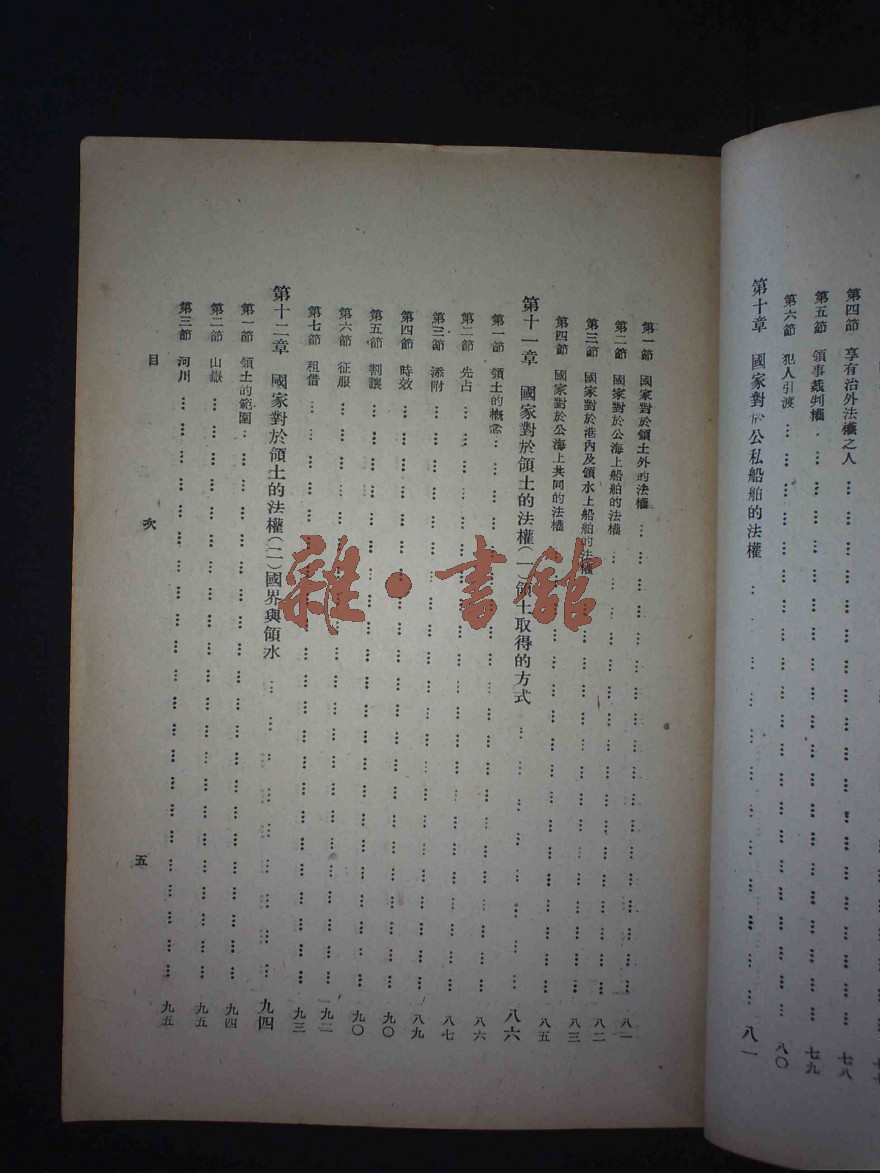 第四節　享有治外法權之人 … … … … … … … … 七八
第五節　領事裁判權 … … … … … … … … 七九
第六節　犯人引渡 … … … … … … … … 八〇
第十章　國家對於公私船舶的法權 … … … … … … … … 八一
第一節　國家對於領土外的法權 … … … … … … … … 八一
第二節　國家對於公海上船舶的法權 … … … … … … … … 八二
第三節　國家對於港內及領水上船舶的法權 … … … … … … … … 八三
第四節　國家對於公海上共同的法權 … … … … … … … … 八五
第十一章　國家對於領土的法權(一)領土取得的方式 … … … … … … … … 八六
第一節　領土的概念 … … … … … … … … 八六
第二節　先占 … … … … … … … … 八七
第三節　添附 … … … … … … … … 八九
第四節　時效 … … … … … … … … 九〇
第五節　割讓 … … … … … … … … 九〇
第六節　征服 … … … … … … … … 九二
第七節　租借 … … … … … … … … 九三
第十二章　國家對於領土的法權(二)國界與領水 … … … … … … … … 九四
第一節　領土的範圍 … … … … … … … … 九四
第二節　山嶽 … … … … … … … … 九五
第三節　河川 … … … … … … … … 九五
目　次　五
雜·書館